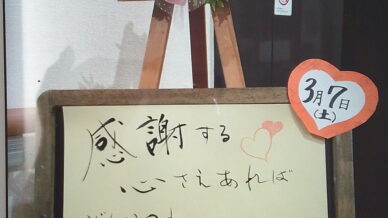 3月7日
(土)
感謝する
心さえあれば